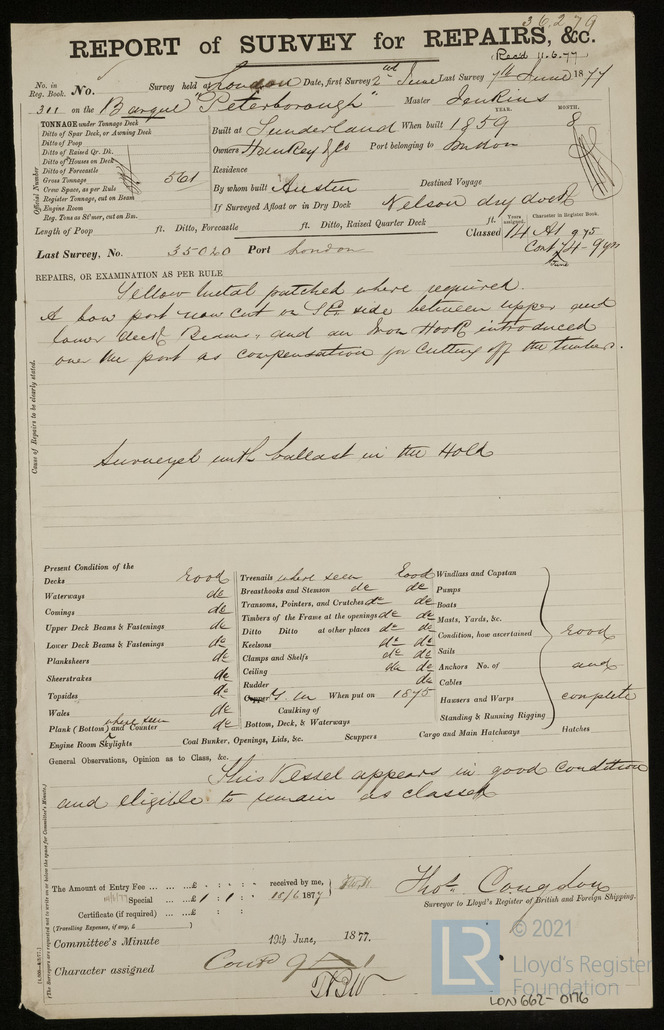 36,279
REPORT of SURVEY for REPAIRS, &c.
Rec'd 11.6.77
No. in Reg. Book. No. Survey held at London Date, first Survey 2nd June Last Survey 7th June 1877
311 on the Barque "Peterborough" Master Jenkins
TONNAGE under Tonnage Deck
Ditto of Spar Deck, or Awning Deck
Ditto of Poop
Ditto of Raised Qr. Dk.
Ditto of Houses on Deck
Ditto of Forecastle
Gross Tonnage 561
Crew Space, as per Rule
Register Tonnage, cut on Beam
Engine Room
Reg. Tons as St'mer, cut on Bm.
Official Number
YEAR. MONTH.
Built at Sunderland When built 1859 8
Owners Hankey & Co Port belonging to London
Residence
By whom built Austin Destined Voyage
If Surveyed Afloat or in Dry Dock Nelson dry dock
Length of Poop ft. Ditto, Forecastle ft. Ditto, Raised Quarter Deck ft.
Years assigned. Character in Register Book.
Classed 14 A1 9,75
Cont 74 - 9 yrs
June
Last Survey, No. 35020 Port London
REPAIRS, OR EXAMINATION AS PER RULE
Yellow Metal patched where required.
A bow port now cut on side between upper and
lower deck Beams, and an Iron Hook introduced
over the port as compensation for cutting off the timbers.
Cause of Repairs to be clearly stated.
Surveyed with ballast in the Hold
Present Condition of the
Decks Good
Waterways do
Comings do
Upper Deck Beams & Fastenings do
Lower Deck Beams & Fastenings do
Planksheers do
Sheerstrakes do
Topsides do
Wales do
where seen
Plank (Bottom) and Counter do
Engine Room Skylights Coal Bunker, Openings, Lids, &c. Scuppers Cargo and Main Hatchways Hatches
Treenails where seen Good
Breasthooks and Stemson do do
Transoms, Pointers, and Crutches do do
Timbers of the Frame at the openings do do
Ditto Ditto at other places do do
Keelsons do do
Clamps and Shelfs do do
Ceiling do do
Rudder do
Copper Y. M When put on 1875
Caulking of
Bottom, Deck, & Waterways
Windlass and Capstan
Pumps
Boats
Masts, Yards, &c.
Condition, how ascertained Good
Sails
Anchors No. of and
Cables
Hawsers and Warps complete
Standing & Running Rigging
General Observations, Opinion as to Class, &c.
This Vessel appears in good condition
and eligible to remain as classed
(The Surveyors are requested not to write on or below the space for Committee's Minute.)
The Amount of Entry Fee ... ... ...£ : : received by me,
Special ... ...£ 1 : 1 : 15/6 1877
Certificate (if required) ... ...£ : :
(Travelling Expenses, if any, £ )
Thos. Congdon
Surveyor to Lloyd's Register of British and Foreign Shipping.
Committee's Minute 19th June, 1877.
Character assigned Contd 9 A 1
LR
© 2021
Lloyd's Register
Foundation
LON 662-0176